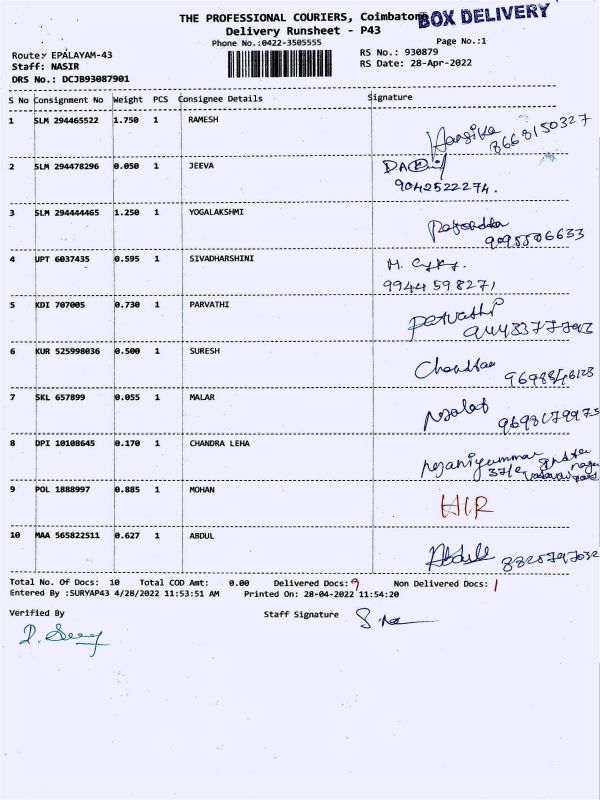 THE PROFESSIONAL COURIERS, Coimbatore
BOX DELIVERY
Delivery Runsheet - P43
Phone No.:0422-3505555
Page No.:1
Route: EPALAYAM-43
RS No.: 930879
Staff: NASIR
RS Date: 28-Apr-2022
DRS No.: DCJB93087901
S No Consignment No Weight PCS Consignee Details Signature
1 SLM 294465522 1.750 1 RAMESH
8668150327
2 SLM 294478296 0.050 1 JEEVA
9042522274.
3 SLM 294444465 1.250 1 YOGALAKSHMI
4 UPT 6037435 0.595 1 SIVADHARSHINI
9944598271
5 KDI 707005 0.730 1 PARVATHI
Parvathi
6 KUR 525998036 0.500 1 SURESH
7 SKL 657899 0.055 1 MALAR
8 DPI 10108645 0.170 1 CHANDRA LEHA
9 POL 1888997 0.885 1 MOHAN
HIR
10 MAA 565822511 0.627 1 ABDUL
Total No. Of Docs: 10 Total COD Amt: 0.00 Delivered Docs: 9 Non Delivered Docs: 1
Entered By :SURYAP43 4/28/2022 11:53:51 AM Printed On: 28-04-2022 11:54:20
Verified By Staff Signature